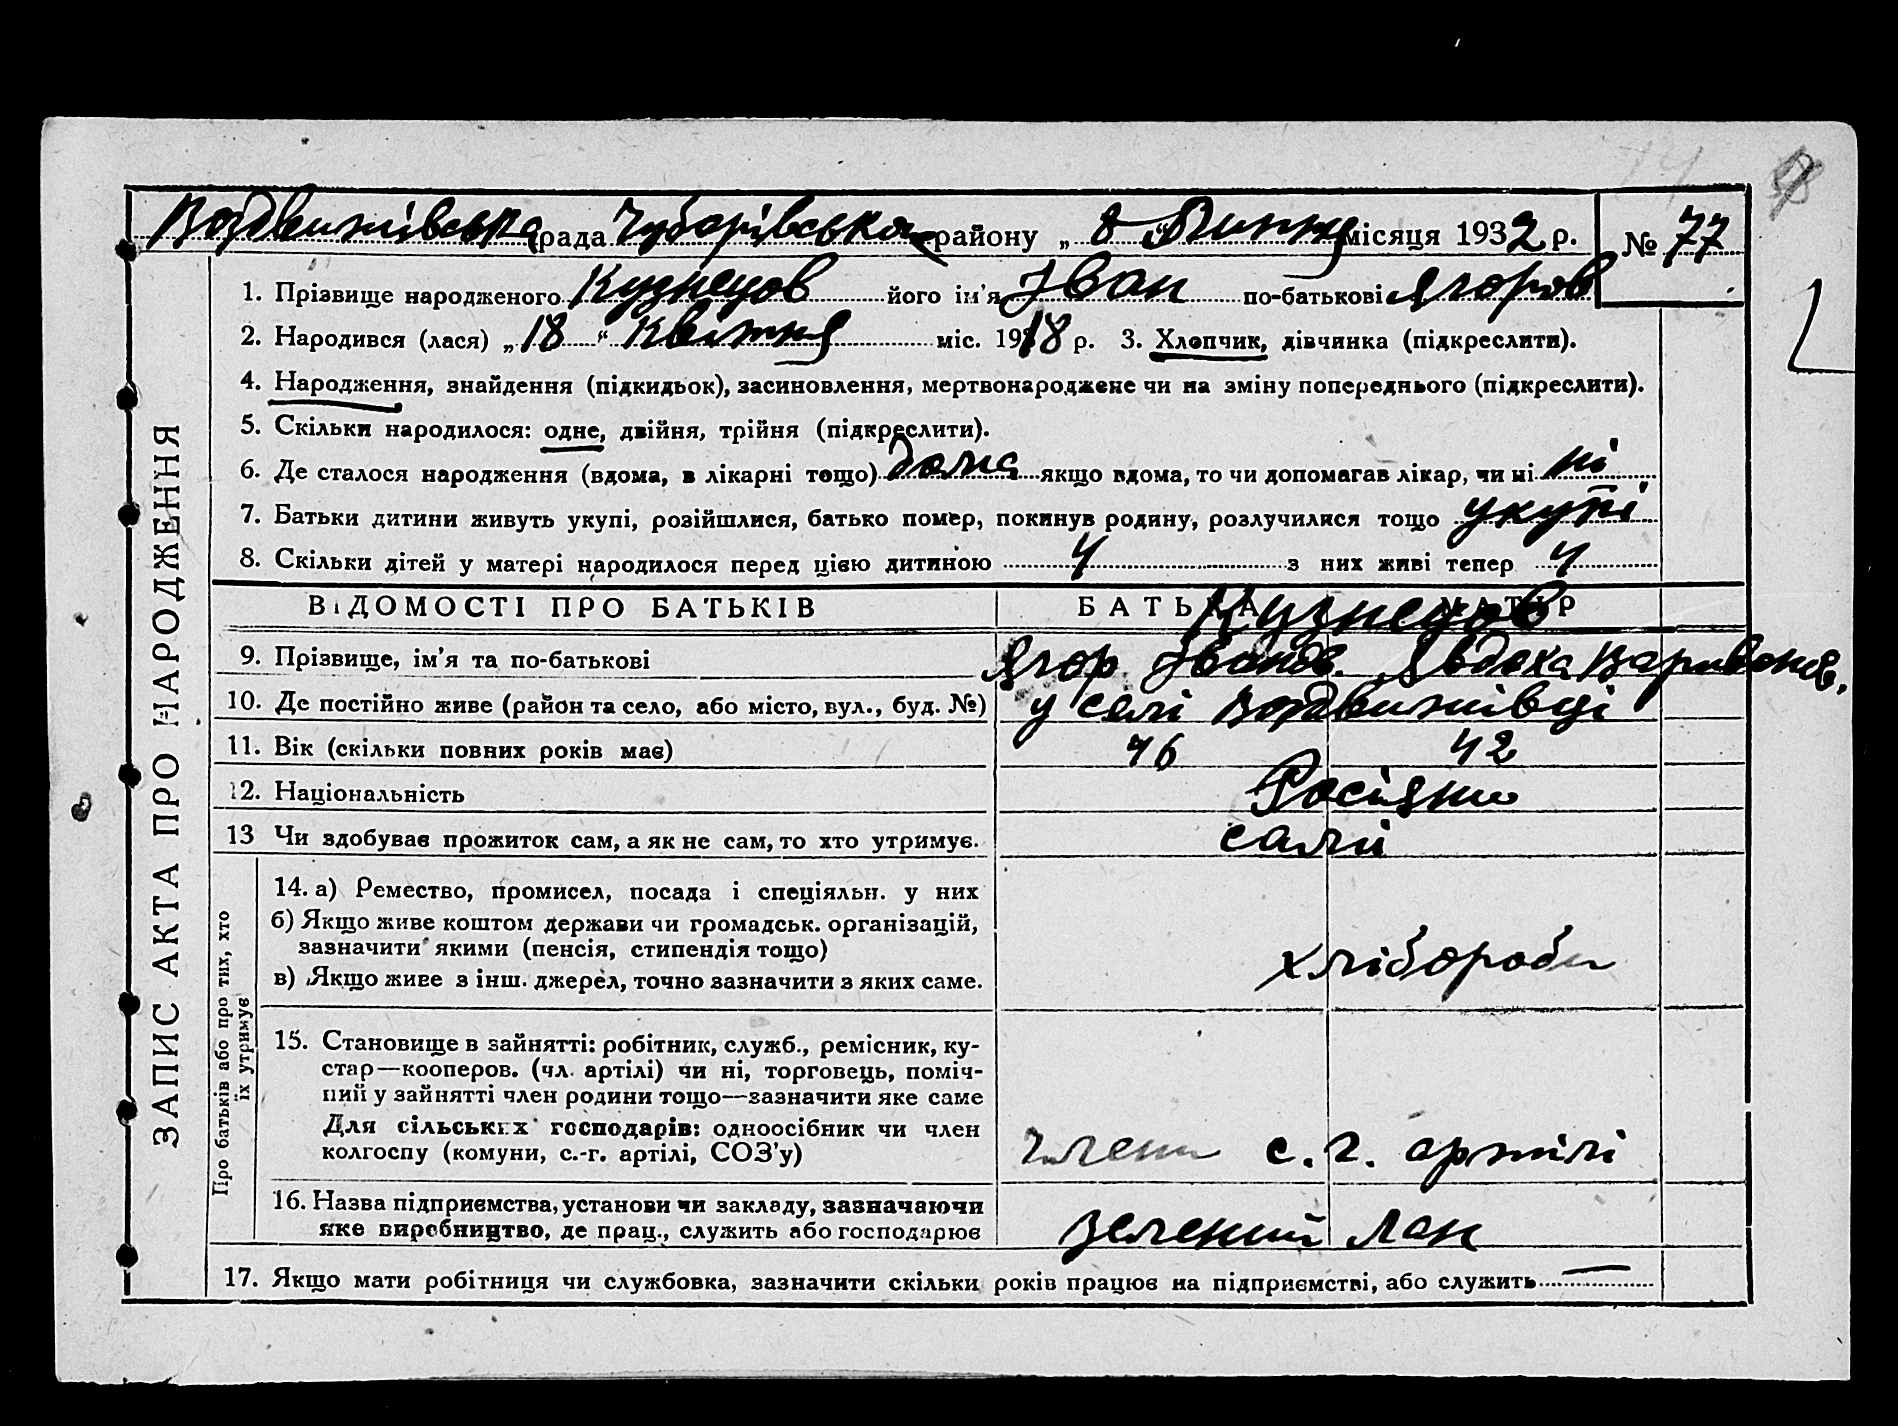 Воздвижівська рада Чубарівського району „ 8 “ Липня місяця 1932 р. № 77
1. Прізвище народженого Кузнецов його ім'я Іван по-батькові Ягоров
2. Народився (лася) „ 18 “ квітня міс. 1918 р. 3. Хлопчик, дівчинка (підкреслити).
4. Народження, знайдення (підкидьок), засиновлення, мертвонароджене чи на зміну попереднього (підкреслити).
5. Скільки народилося: одне, двійня, трійня (підкреслити).
6. Де сталося народження (вдома, в лікарні тощо) дома якщо вдома, то чи допомагав лікар, чи ні ні
7. Батьки дитини живуть укупі, розійшлися, батько помер, покинув родину, розлучилися тощо укупі
8. Скільки дітей у матері народилося перед цією дитиною 4 з них живі тепер 4
ВІДОМОСТІ ПРО БАТЬКІВ БАТЬКА МАТІР
Кузнецов
9. Прізвище, ім'я та по-батькові Ягор Іванов. Явдоха Варивонів.
10. Де постійно живе (район та село, або місто, вул., буд. №) у селі Воздвижівці
11. Вік (скільки повних років має) 46 42
12. Національність Росіяни
13 Чи здобуває прожиток сам, а як не сам, то хто утримує. сами
14. а) Ремество, промисел, посада і спеціяльн. у них
б) Якщо живе коштом держави чи громадськ. організацій,
зазначити якими (пенсія, стипендія тощо)
хлібороби
в) Якщо живе з інш. джерел, точно зазначити з яких саме.
15. Становище в зайнятті: робітник, служб., ремісник, ку-
стар—кооперов. (чл. артілі) чи ні, торговець, поміч-
ний у зайнятті член родини тощо—зазначити яке саме
Для сільських господарів: одноосібник чи член
колгоспу (комуни, с.-г. артілі, СОЗ'у) члени с. г. артілі
16. Назва підприємства, установи чи закладу, зазначаючи
яке виробництво, де прац., служить або господарює зелений лан
17. Якщо мати робітниця чи службовка, зазначити скільки років працює на підприємстві, або служить —
ЗАПИС АКТА ПРО НАРОДЖЕННЯ
Про батьків або про тих, хто
їх утримує